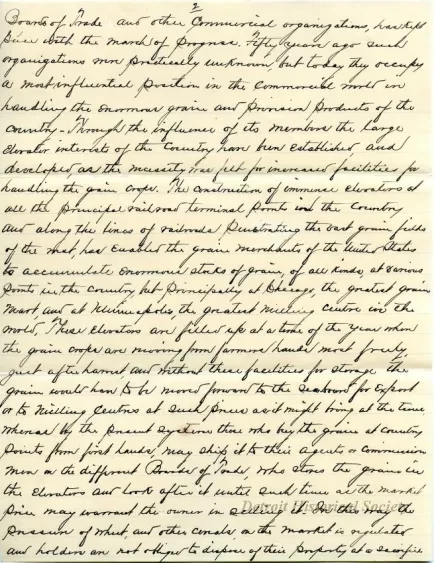 2
Boards of Trade and other Commercial organizations, has kept
pace with the march of Progress. Fifty years ago such
organizations were practically unknown, but today they occupy
a most influential position in the Commercial world in
handling the enormous grain and Provision Products of the
country - Through the influence of its members the large
Elevator interests of the Country have been established, and
developed, as the necessity was felt for increased facilities for
handling the grain crops. The construction of immense elevators at
all the principal railroad terminal points in the Country
and along the lines of railroads penetrating the vast grain fields
of the west, has enabled the grain merchants of the United States
to accumulate enormous stocks of grain, of all kinds, at various
points in the Country, but principally at Chicago, the greatest grain
Mart, and at Minneapolis, the greatest Milling Centre in the
world. These Elevators are filled up at a time of the Year when
the grain crops are moving from farmers hands most freely,
just after harvest and without these facilities for storage the
grain would have to be moved forward to the seaboard for Export
or to Milling Centres at such prices as it might bring at the time,
whereas by the present system those who buy the grain at country
points from first hands, may ship it to their agents or Commission
Men on the different Boards of Trade, who store the grain in
the Elevators and look after it until such time as the market
price may warrant the owner in selling it. In this way the
pressure of wheat, and other cereals, on the market is regulated
and holders are not obliged to dispose of their property at a sacrifice
Detroit Historical Society